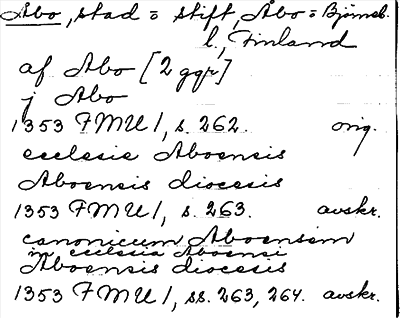 Åbo, stad o stift, Åbo o Björneb.
l., Finland
af Abo [2 ggr]
j Abo
1353 FMU 1, s. 262. orig.
ecclesie Aboensis
Aboensis diocesis
1353 FMU 1, s. 263. avskr.
canonicum Aboensem
in ecclesia Aboensi
Aboensis diocesis
1353 FMU 1, ss. 263, 264. avskr.